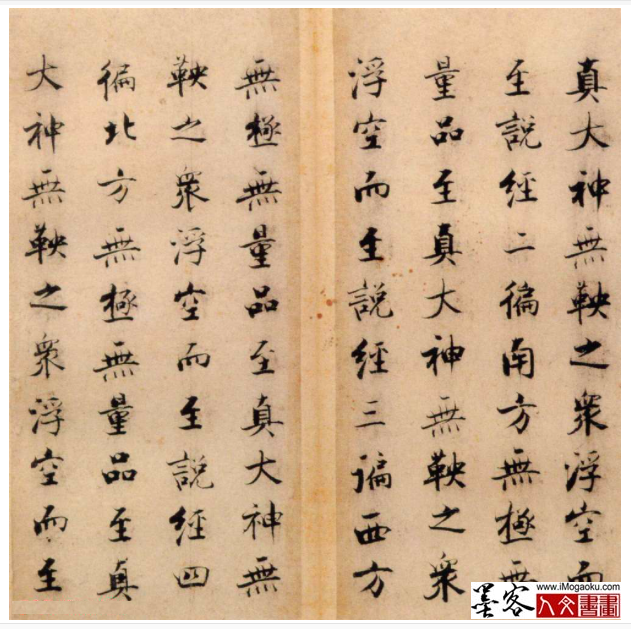 真大神無鞅之衆浮空而
至說經二徧南方無極無
量品至真大神無鞅之衆
浮空而至說經三徧西方
無極無量品至真大神無
鞅之衆浮空而至說經四
徧北方無極無量品至真
大神無鞅之衆浮空而至
墨客
www.iMogaoku.com
人文書畫